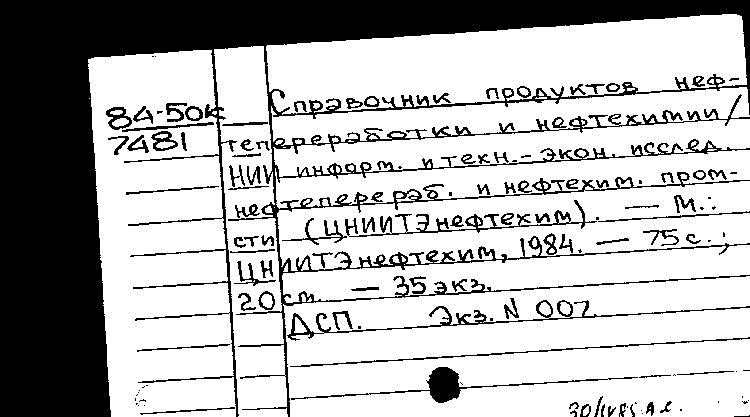 84-50к
7481
Справочник продуктов неф-
тепереработки и нефтехимии/
НИИ информ. и техн.-экон. исслед.
нефтеперераб. и нефтехим. пром-
сти (ЦНИИТЭнефтехим). — М.:
ЦНИИТЭнефтехим, 1984. — 75 с.;
20 см. — 35 экз.
ДСП. Экз. N 007